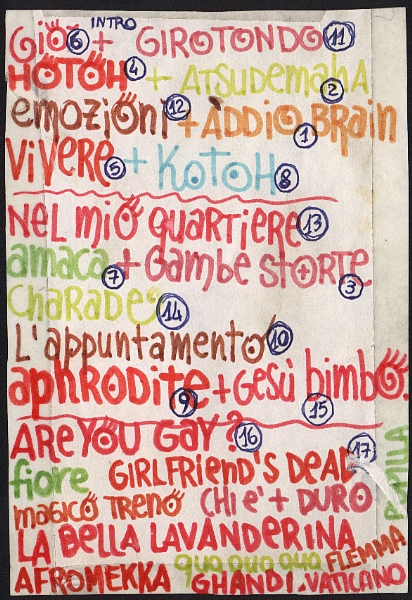 INTRO
GIÒ 6 + GIROTONDO 11
HOTOH 4 + ATSUDEMAHA 2
emozioni 12 + ADDIO BRAIN 1
VIVERE 5 + KOTOH 8
NEL MIO QUARTIERE 13
amaca 7 + GAMBE STORTE 3
CHARADE 14
L'appuntamento 10
aphrodite 9 + Gesù bimbo 15
ARE YOU GAY? 16
fiore GIRLFRIEND'S DEAD 17
MAGICO TRENO CHI E' + DURO
LA BELLA LAVANDERINA
QUA QUA QUA FLEMMA
AFROMEKKA GHANDI - VATICANO